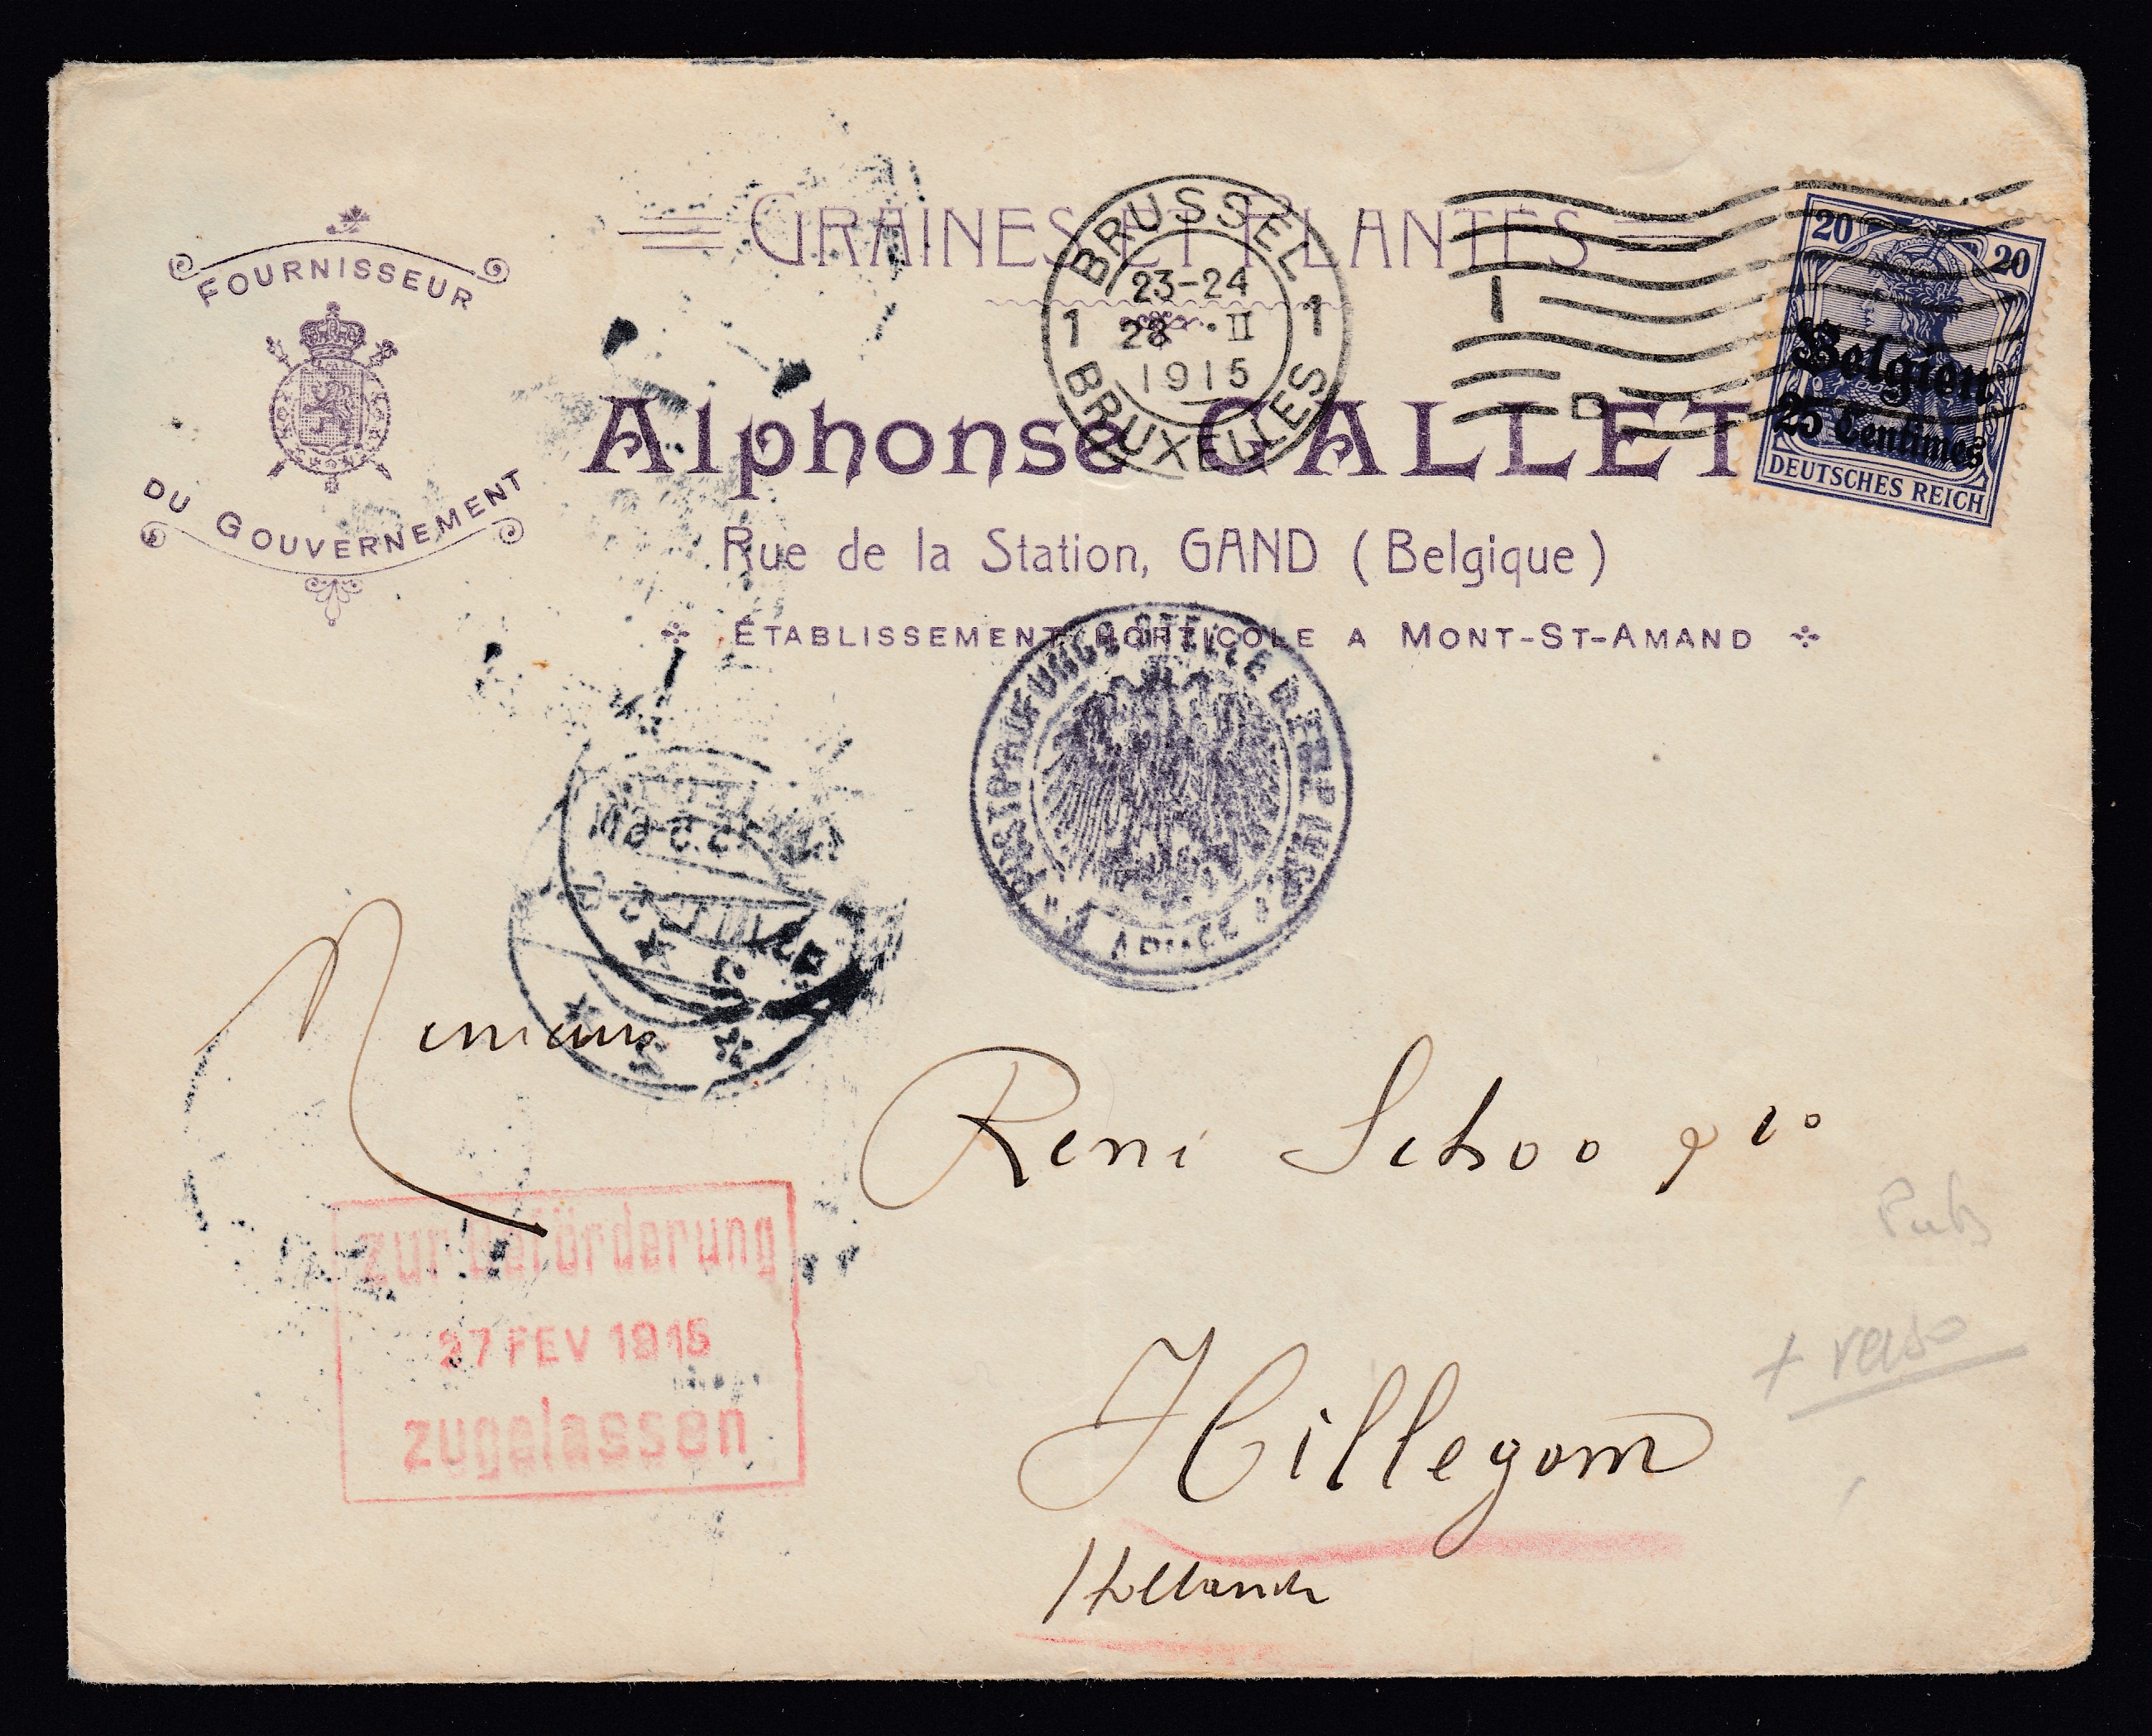 GRAINES ET PLANTES
FOURNISSEUR
DU GOUVERNEMENT
BRUSSEL
23-24
1 28 · II 1
1915
BRUXELLES
20 20
Belgien
25 Centimes
DEUTSCHES REICH
Alphonse CALLET
Rue de la Station, GAND (Belgique)
ÉTABLISSEMENT HORTICOLE A MONT-ST-AMAND
René Schoo & Co
zur Beförderung
27 FEV 1915
zugelassen
Pub
+ verso
Hillegom
Hollande